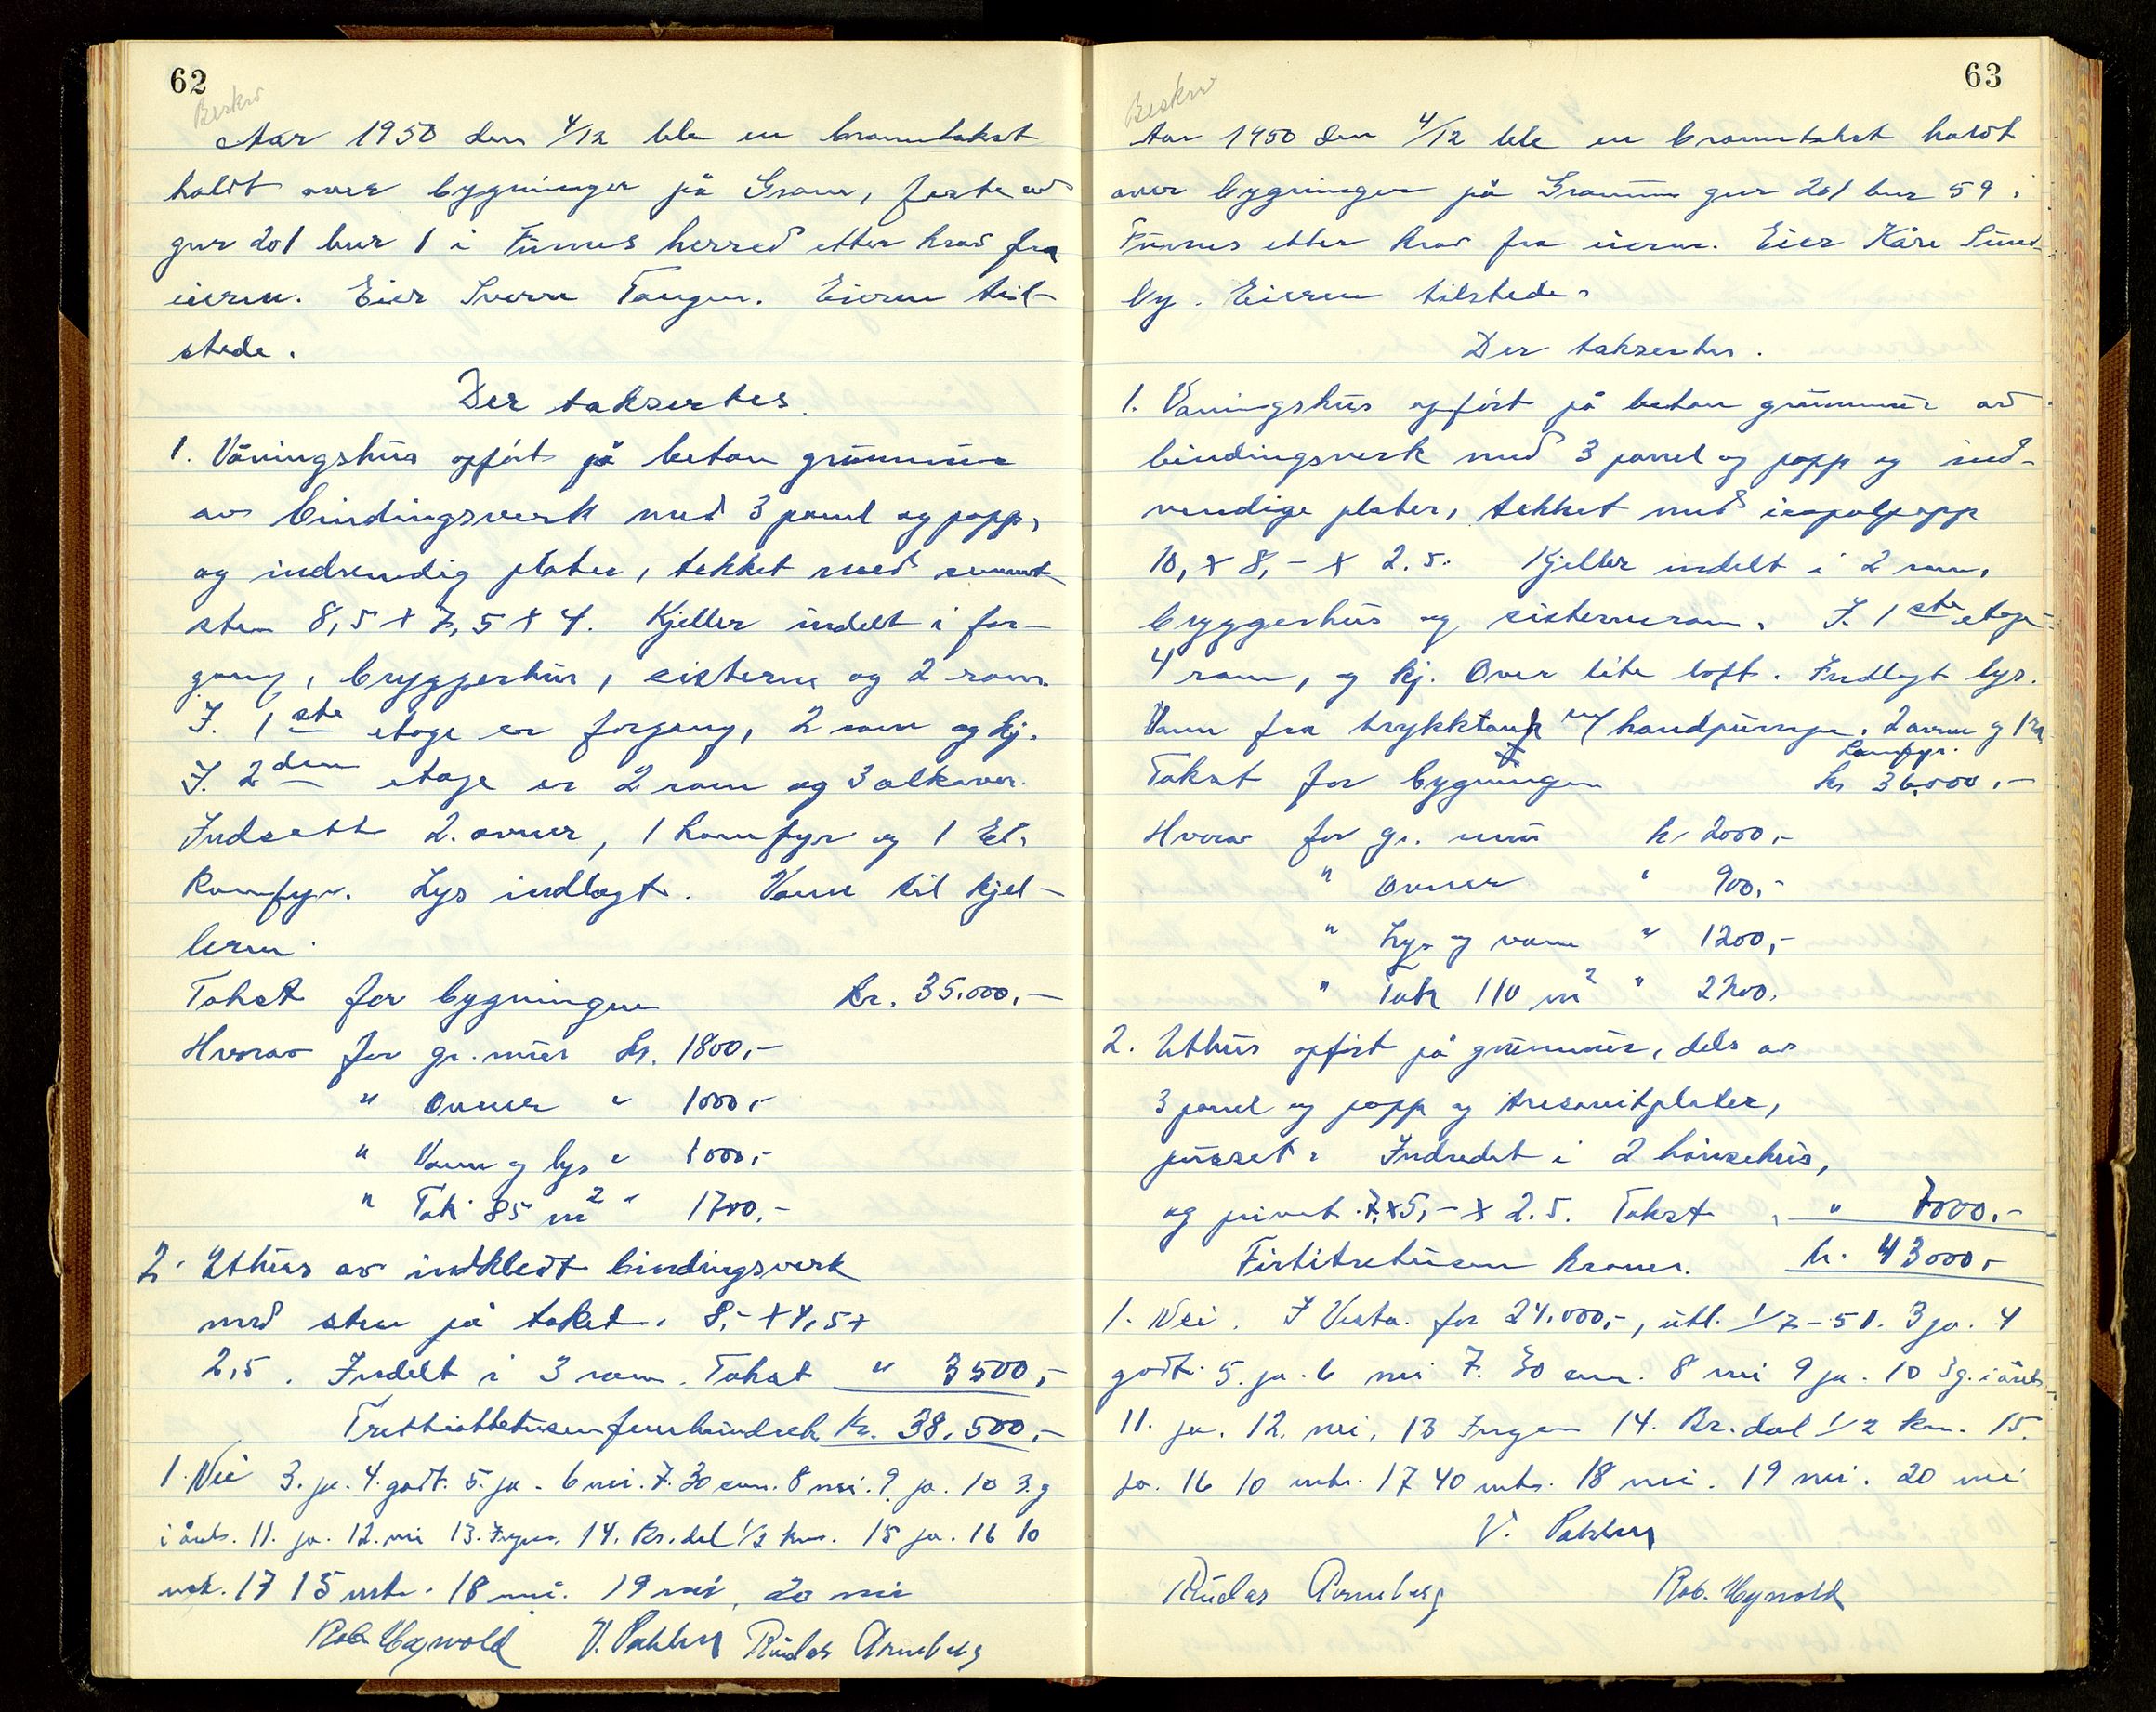 62
Beskrev
Aar 1950 den 4/12 ble en branntakst
holdt over bygninger på Gran, feste av
gnr 201 bnr 1 i Furnes herred etter krav fra
eieren. Eier Sverre Tangen. Eieren til-
stede.
Der taksertes.
1. Våningshus opført på betong grunnmur
av bindingsverk med 3 panel og papp,
og indvendig plater, tekket med sement-
sten 8,5 + 7,5 + 4. Kjeller indelt i for-
gang, bryggerhus, cisterne og 2 rom.
I. 1ste etage er forgang, 2 rom og kj.
I. 2den etage er 2 rom og 3 alkover.
Indsatt 2. ovner, 1 komfyr og 1 El.
Komfyr. Lys indlagt. Vann til kjel-
leren.
Takst for bygningen kr. 35.000,-
Hvorav for gr. mur kr. 1800,-
" Ovner " 1000,-
" Vann og lys " 1000,-
" Tak 85 m2 " 1700,-
2. Uthus av indkledt bindingsverk
med sten på taket. 8,- + 4,5 +
2,5. Indelt i 3 rom. Takst " 3500,-
Trettiottetusenfemhundrek. kr. 38.500,-
1. Nei 3. ja. 4. godt. 5. ja. 6 nei. 7. 30 cm. 8 nei. 9 ja. 10 3. g
i året. 11. ja. 12. nei 13. Ingen. 14. Br.dal 1/2 km. 15 ja. 16 10
mtr. 17 15 mtr. 18 nei. 19 nei, 20 nei
Rob. Uggwold V. Pahlm Reidar Arneberg
63
Beskrev
Aar 1950 den 4/12 ble en branntakst holdt
over bygninger på gnr 201 bnr 59 i
Furnes etter krav fra eieren. Eier Kåre Sund-
by. Eieren tilstede.
Der taksertes.
1. Vaningshus opført på betong grunnmur av
bindingsverk med 3 panel og papp og ind-
vendige plater, tekket med icopalpapp
10, x 8,- x 2.5. Kjeller indelt i 2 rom,
bryggerhus og cisternerom. I. 1ste etage
4 rom, og kj. Over lite loft. Indlagt lys.
Vann fra trykktank m/ handpumpe. 2 ovner og 1
komfyr.
Takst for bygningen kr 36.000,-
Hvorav for gr. mur kr 2000,-
" Ovner " 900,-
" Lys og vann " 1200,-
" Tak 110 m2 " 2200.
2. Uthus opført på grunnmur, dels av
3 panel og papp og tresonitplater,
pusset. Indredet i 2 hønsehus,
og privet. 7,x5,- x 2.5. Takst " 7000,-
Førtitretusen kroner. kr. 43000,-
1. Nei. I Vesta. for 24.000,-, utl. 1/7-51. 3 ja. 4
godt. 5. ja. 6 nei 7. 30 cm. 8 nei 9 ja. 10 3g. i året.
11. ja. 12. nei, 13 Ingen 14. Br.dal 1/2 km. 15.
ja. 16 10 mtr. 17 40 mtr. 18 nei. 19 nei. 20 nei
V. Pahlm
Reidar Arneberg Rob. Uggwold